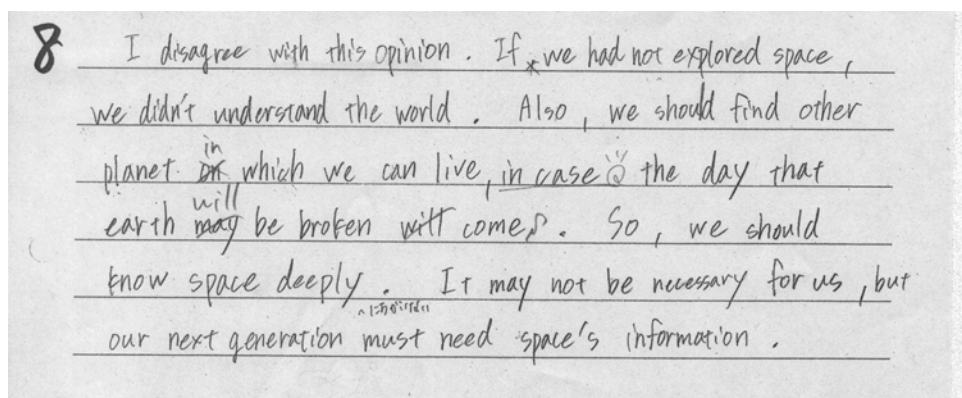 8 I disagree with this opinion. If we had not explored space,
we didn't understand the world. Also, we should find other
planet in which we can live, in case the day that
earth will be broken will come♪. So, we should
know space deeply. It may not be necessary for us, but
our next generation must need space's information.